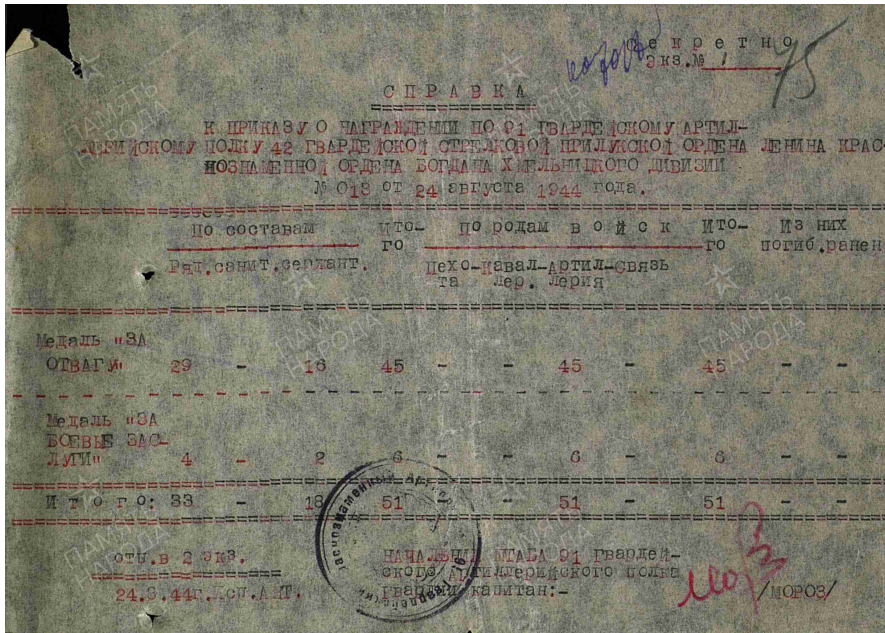 Секретно
Экз.№ 1
75
СПРАВКА
К ПРИКАЗУ О НАГРАЖДЕНИИ ПО 91 ГВАРДЕЙСКОМУ АРТИЛ-
ЛЕРИЙСКОМУ ПОЛКУ 42 ГВАРДЕЙСКОЙ СТРЕЛКОВОЙ ПРИЛУКСКОЙ ОРДЕНА ЛЕНИНА КРАС-
НОЗНАМЕННОЙ ОРДЕНА БОГДАНА ХМЕЛЬНИЦКОГО ДИВИЗИИ
№ 018 от 24 августа 1944 года.
По составам Ито- По родам войск Ито- Из них
го го погиб.ранен
Ряд.санит.сержант. Пехо-Кавал-Артил-Связь
та лер. лерия
Медаль "ЗА
ОТВАГУ" 29 - 16 45 - - 45 - 45 - -
Медаль "ЗА
БОЕВЫЕ ЗАС-
ЛУГИ" 4 - 2 6 - - 6 - 6 - -
Итого: 33 - 18 51 - - 51 - 51 - -
отп.в 2 экз. НАЧАЛЬНИК ШТАБА 91 Гвардей-
ского Артиллерийского полка
24.8.44г. гвардии капитан:- /МОРОЗ/
ПАМЯТЬ НАРОДА